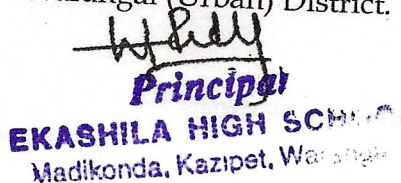 (Urban) District.
Principal
EKASHILA HIGH
Madikonda, Kazipet,